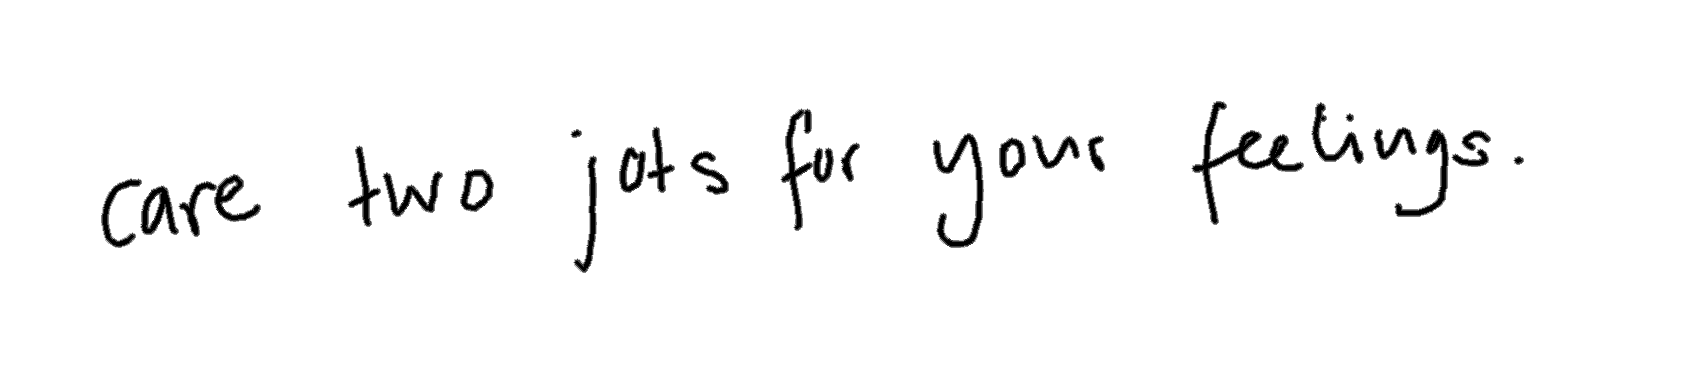 care two jots for your feelings.